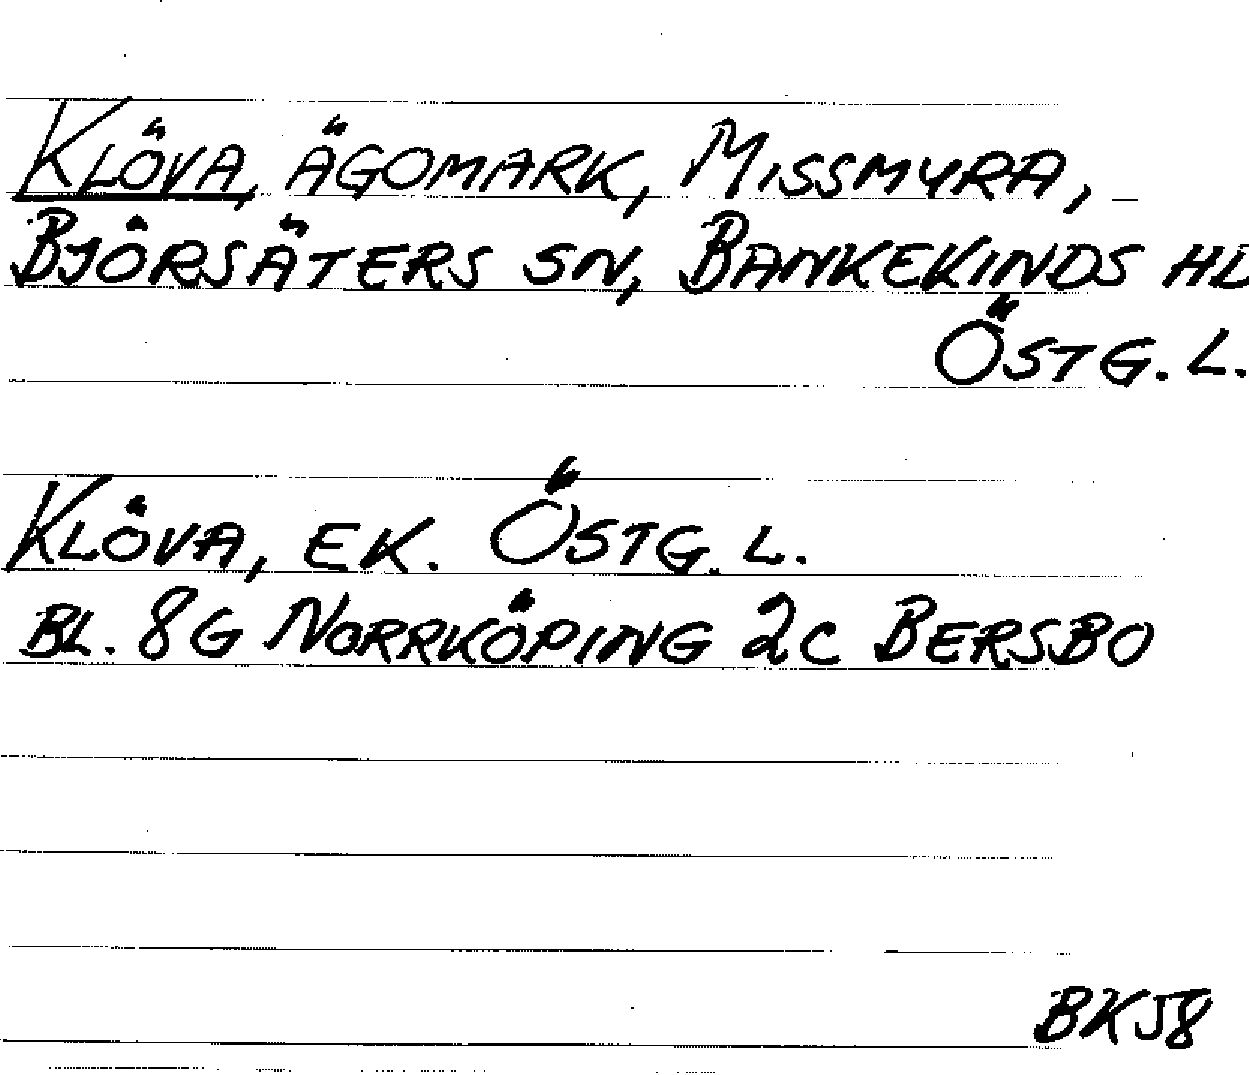 KLÖVA, ÄGOMARK, MISSMYRA,
BJÖRSÄTERS SN, BANKEKINDS HD
ÖSTG. L.
KLÖVA, EK. ÖSTG. L.
BL. 8G NORRKÖPING 2C BERSBO
BKJ8